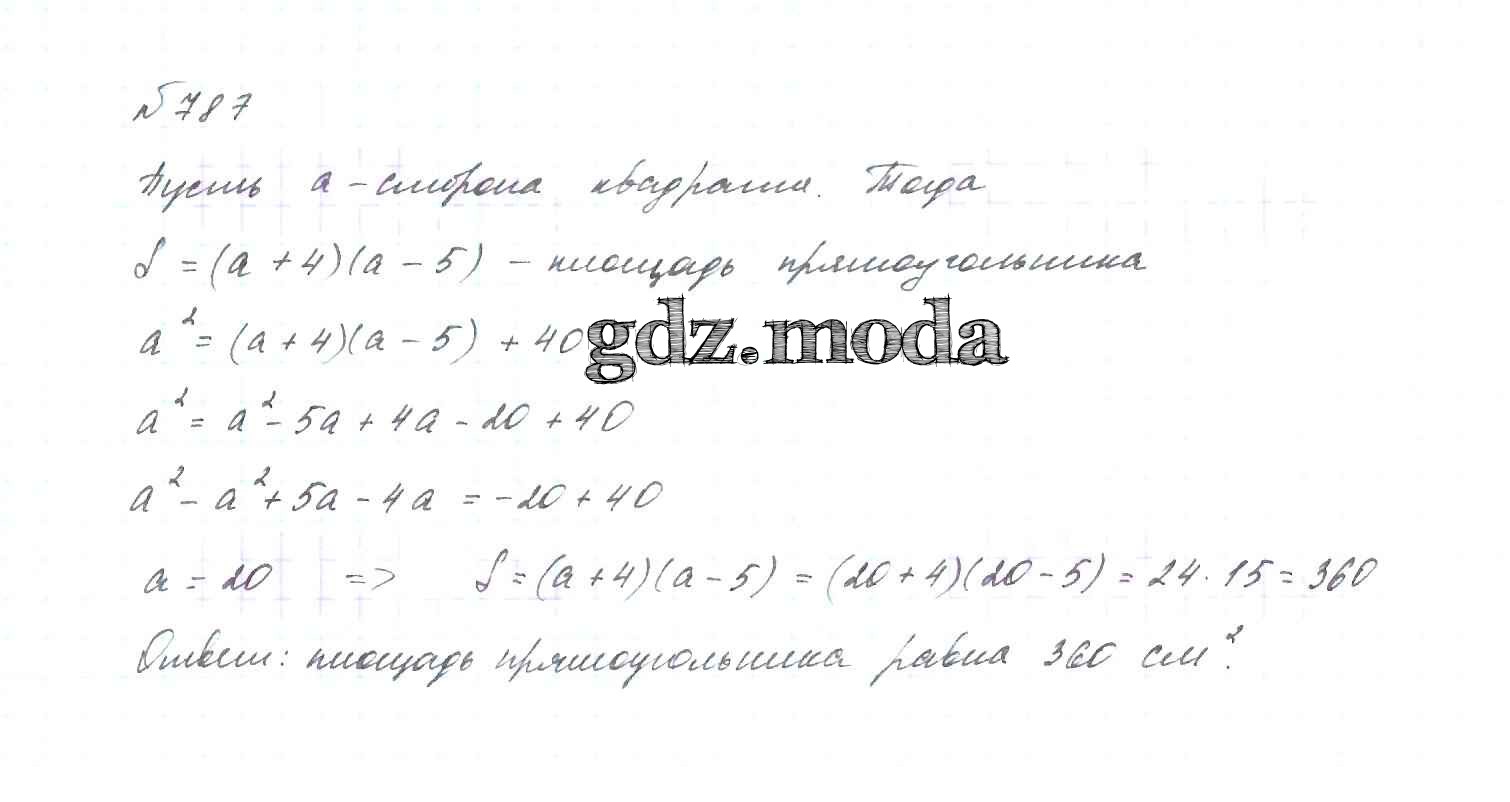 №787
Пусть a – сторона квадрата. Тогда
S = (a + 4)(a − 5) – площадь прямоугольника
a² = (a + 4)(a − 5) + 40
gdz.moda
a² = a² − 5a + 4a − 20 + 40
a² − a² + 5a − 4a = −20 + 40
a = 20 => S = (a + 4)(a − 5) = (20 + 4)(20 − 5) = 24 · 15 = 360
Ответ: площадь прямоугольника равна 360 см².